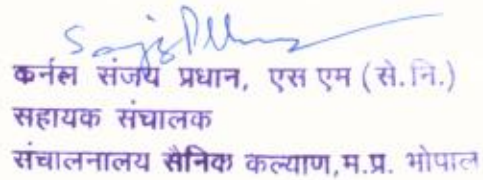 कर्नल संजय प्रधान, एस एम (से.नि.)
सहायक संचालक
संचालनालय सैनिक कल्याण,म.प्र. भोपाल